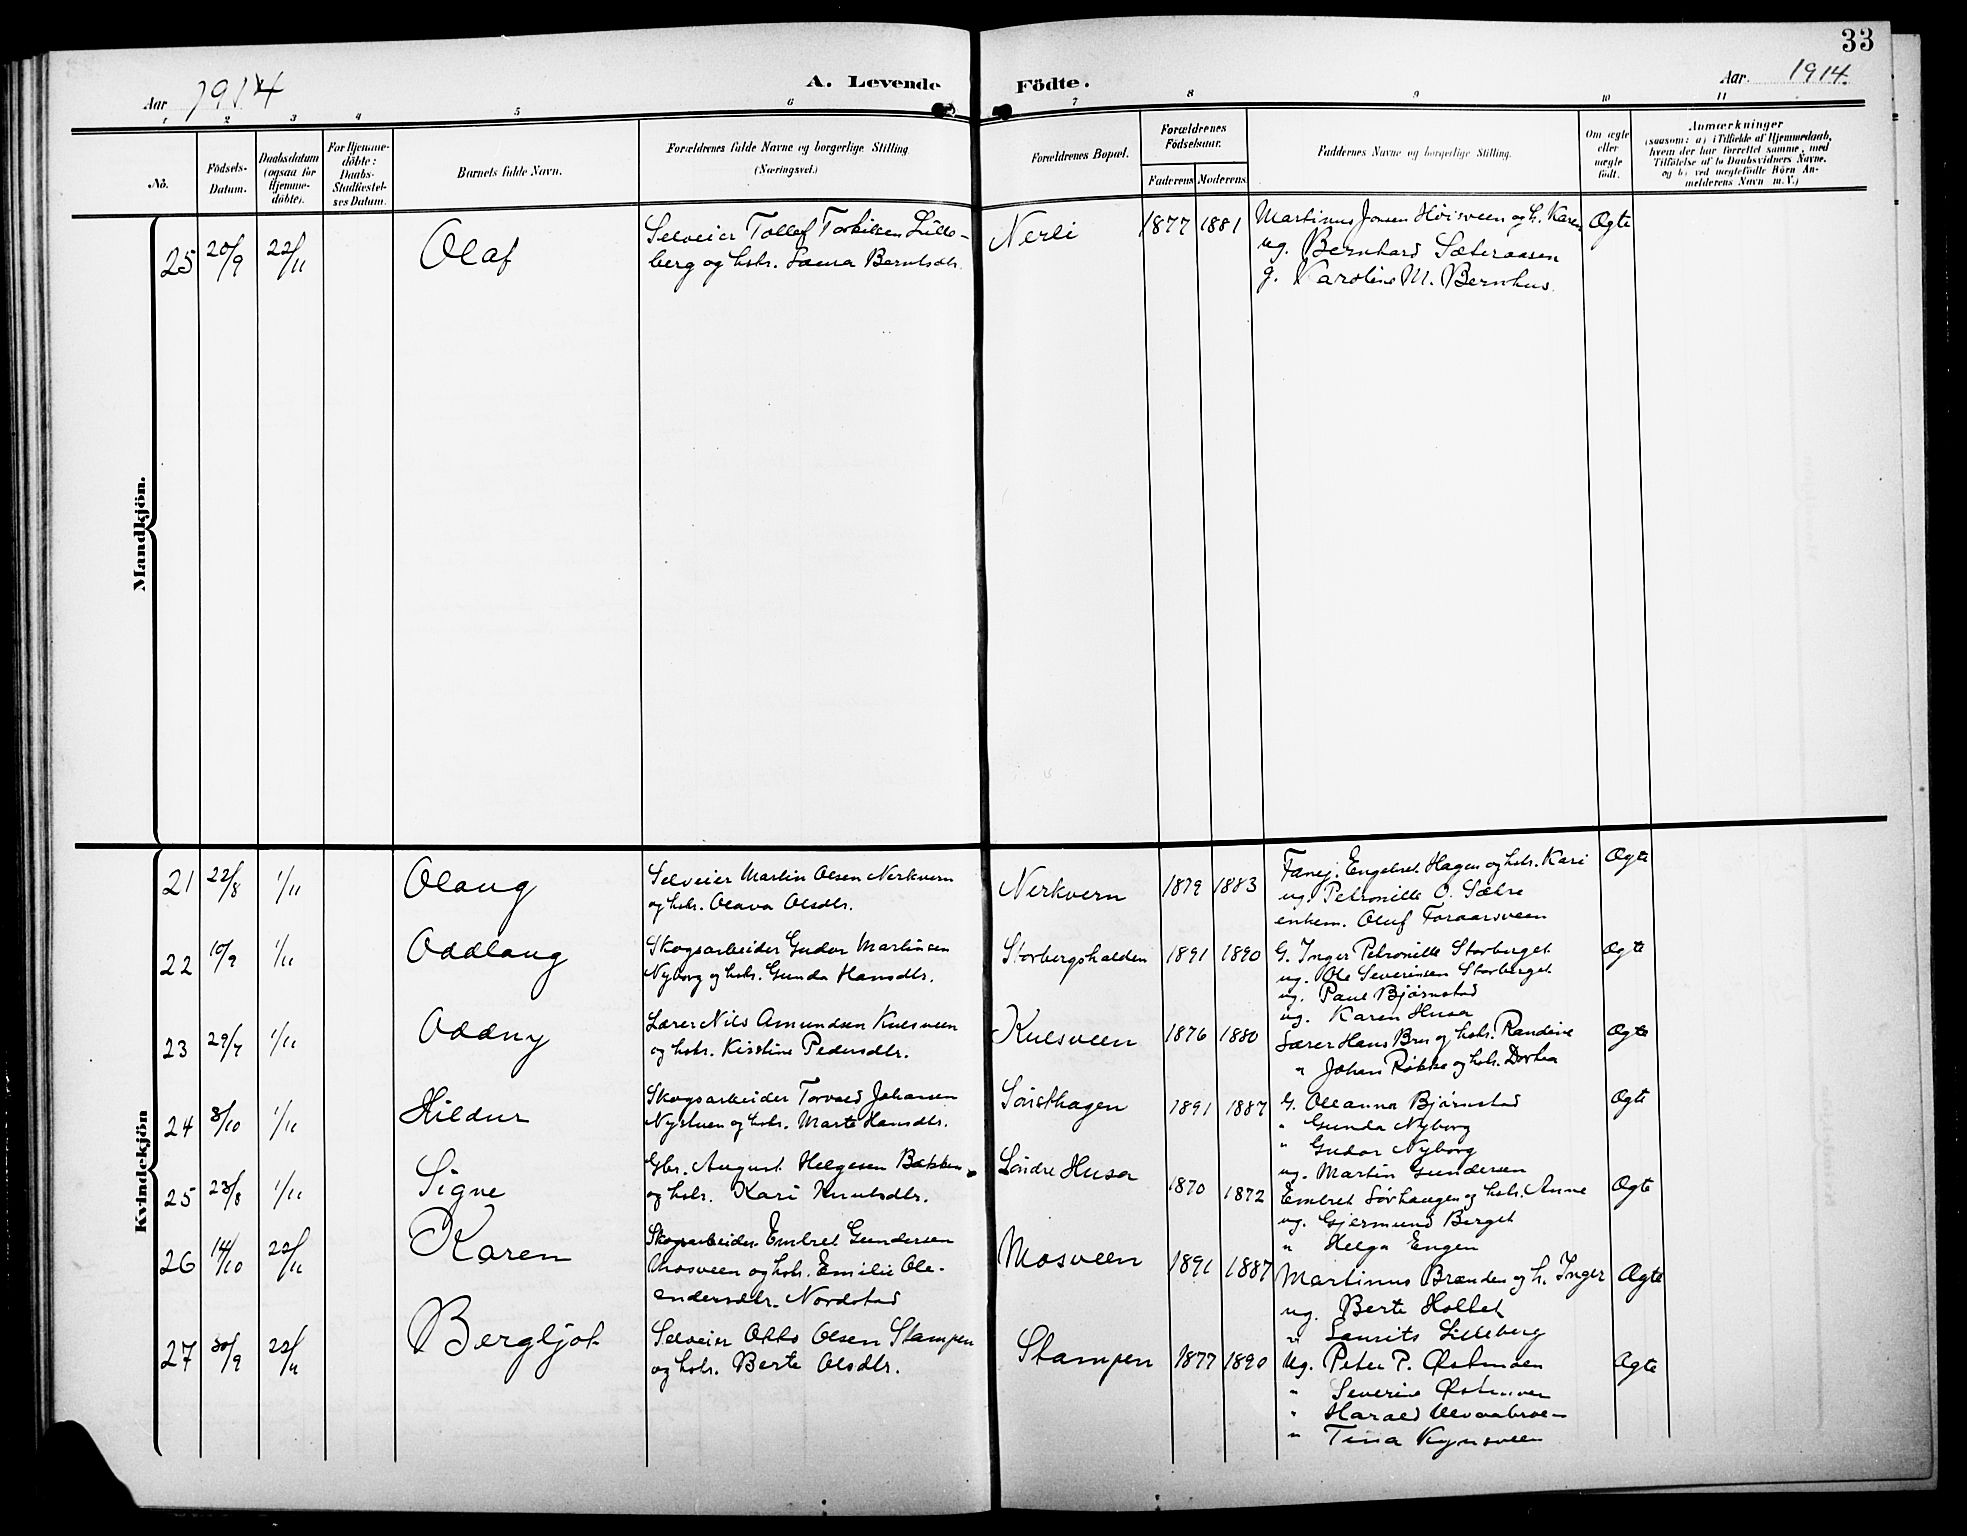 33
Aar 1914
A. Levende Födte.
Aar. 1914.
1 2 3 4 5 6 7 8 9 10 11
No.
Födsels-Datum.
Daabsdatum (ogsaa for Hjemmedöbte).
For Hjemmedöbte: Daabs-Stadfæstelses Datum.
Barnets fulde Navn.
Forældrenes fulde Navne og borgerlige Stilling
(Næringsvei.)
Forældrenes Bopæl.
Forældrenes Födselsaar.
Faderens Moderens
Faddernes Navne og borgerlige Stilling.
Om ægte eller uægte födt.
Anmærkninger
(saasom: a) i Tilfælde af Hjemmedaab,
hvem der har forrettet samme, med
Tilföielse af to Daabsvidners Navne.
og b) ved uægtefödte Börn An-
melderens Navn m. V.)
Mandkjön.
25 20/9 22/11 Olaf Selveier Tollef Torkilsen Lille- Nerli 1877 1881 Martinus Jonsen Höisveen og h. Karen Ægte
berg og hstr. Laura Berntsdtr. ug. Bernhard Sæteraasen
g. Karoline M. Bernhus
Kvindekjön
21 22/8 1/11 Olaug Selveier Martin Olsen Nerkvern Nerkvern 1879 1883 Fanej. Engebret Hagen og hstr. Kari Ægte
og hstr. Olava Olsdtr. ug. Petronille O. Sætre
enkem. Oluf Foraarsveen
22 10/9 1/11 Oddlaug Skogsarbeider Gudor Martinsen Storbergshalden 1891 1890 G. Inger Petronille Storberget Ægte
Nyborg og hstr. Gunda Hansdtr. ug. Ole Severinsen Storberget
ug. Paul Bjørnstad
ug. Karen Husa
23 29/7 1/11 Oddny Lærer Nils Amundsen Kulsveen Kulsveen 1876 1880 Lærer Hans Bru og hstr. Randine Ægte
og hstr. Kirstine Pedersdtr. " Johan Røkke og hstr. Dorthea
24 3/10 1/11 Hildur Skogsarbeider Torvald Johansen Sönsthagen 1891 1887 G. Oleanna Bjørnstad Ægte
Nystuen og hstr. Marte Hansdtr. " Gunda Nyborg
" Gudor Nyborg
ug. Martin Gundersen
25 23/8 1/11 Signe Gbr. August Helgesen Bakken Söndre Husa 1870 1872 Embret Sørhaugen og hstr. Anne Ægte
og hstr. Kari Knutsdtr. ug. Gjermund Berget
" Helga Engen
26 14/10 22/11 Karen Skogsarbeider Embret Gundersen Mosveen 1891 1887 Martinus Brænden og h. Inger Ægte
Mosveen og hstr. Emilie Ole- ug. Berte Holtet
andersdtr. Nordstad " Laurits Lilleberg
27 30/9 22/11 Bergljot Selveier Otto Olsen Stampen Stampen 1877 1890 Ug. Peter P. Østmoen Ægte
og hstr. Berte Olsdtr. " Severine
" Harald
" Tina